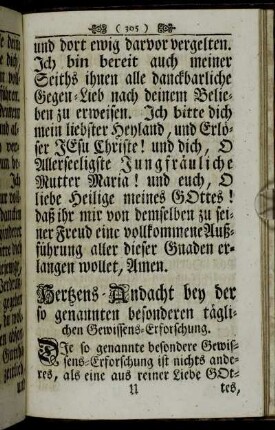 ( 305 )
und dort ewig darvor vergelten.
Ich bin bereit auch meiner
Seiths ihnen alle danckbarliche
Gegen-Lieb nach deinem Belie-
ben zu erweisen. Ich bitte dich
mein liebster Heyland, und Erlö-
ser JEsu Christe! und dich, O
Allerseeligste Jungfräuliche
Mutter Maria! und euch, O
liebe Heilige meines GOttes!
daß ihr mir von demselben zu sei-
ner Freud eine vollkommene Auß-
führung aller dieser Gnaden er-
langen wollet, Amen.
Hertzens-Andacht bey der
so genannten besonderen tägli-
chen Gewissens-Erforschung.
DIe so genannte besondere Gewis-
sens-Erforschung ist nichts ande-
res, als eine aus reiner Liebe GOt-
U tes,